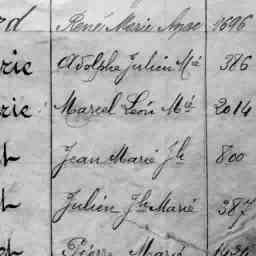 rd René Marie Ange 1696
rie Adolphe Julien Mie 386
rie Marcel Léon Mie 2014
t Jean Marie Jh 800
t Julien Jh Marie 387
t Pierre Marie